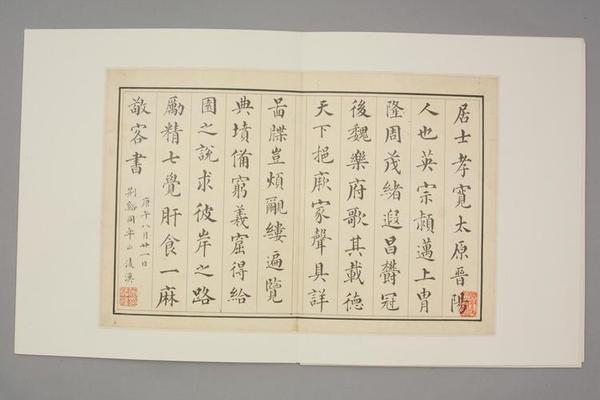 居士孝寬太原晉陽
人也英宗穎邁上胄
隆周茂緒遐昌欝冠
後魏樂府歌其載德
天下挹厥家聲具詳
啚牒豈煩覼縷遍覽
典墳備窮義窟得給
園之說求彼岸之路
勵精七覺旰食一麻
敬客書
庚午八月廿一日
荊谿同年正